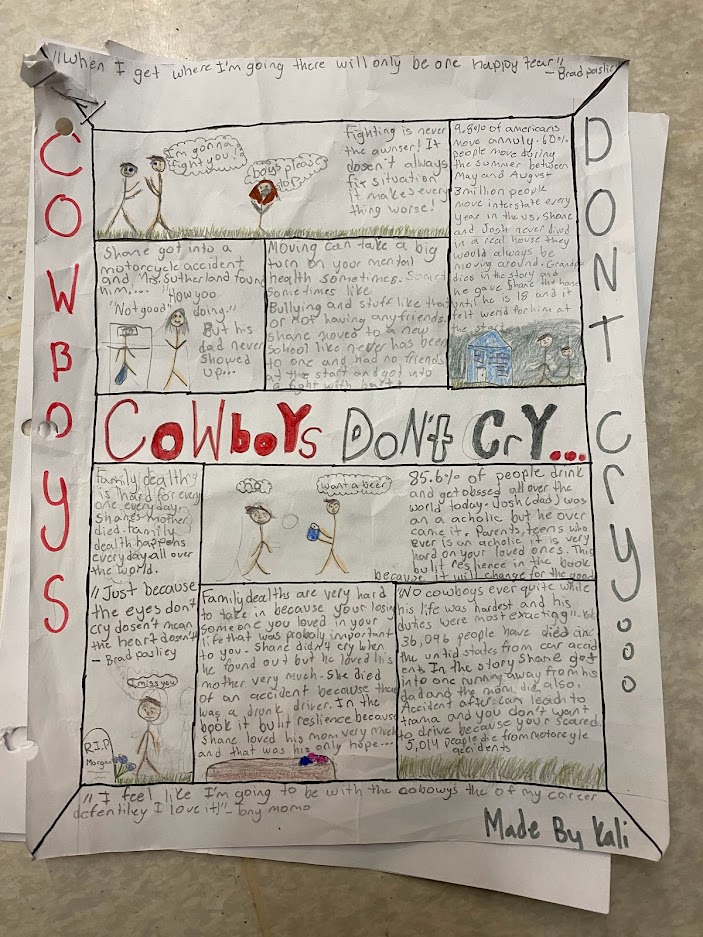 "When I get where I'm going there will only be one happy tear"
- Brad pasliey
COWBOYS
DONT CRY...
I'm gonna
fight you!
boys please
stop
fighting is never
the awnser! It
dosen't always
fix situation
it makes every
thing worse!
9.8% of americans
move annuly. 60%
people move during
the summer between
May and August
3 million people
move interstate every
year in the US. Shane
and Josh never lived
in a real house they
would always be
moving around. Grandpa
dies in the story and
he gave Shane the house
until he is 18 and it
felt werid for him at
the start
Shane got into a
motorcycle accident
and Mrs. Sutherland found
him....
"How you
doing."
"Not good"
But his
dad never
showed
up...
Moving can take a big
turn on your mental
health sometimes.
Sometimes like
Bullying and stuff like that
or not having any friends.
Shane moved to a new
school like never has been
to one and had no friends
at the start and got into
a fight with
COWBOYS DON't CrY...
Family dealths
is hard for every
one everyday.
Shanes mother
died. family
dealth happens
everyday all over
the world.
"Just because
the eyes don't
cry dosen't mean
the heart dosen't
- Brad pasliey
I miss you
R.I.P
Morgan
Want a beer
85.6% of people drink
and get obssed all over the
world today. Josh (dad) was
an a acholic but he over
came it. Parents, teens who
ever is an acholic it is very
hard on your loved ones. This
bulit reslience in the book
because it will change for the good
Family dealths are very hard
to take in because your losing
someone you loved in your
life that was probaly important
to you. Shane didn't cry when
he found out but he loved his
mother very much. She died
of an accident because there
was a drunk driver. In the
book it bulit reslience because
Shane loved his mom very much
and that was his only hope...
"No cowboys ever quite while
his life was hardest and his
duties were most exacting"
36,096 people have died in
the untid states from car accid
ents. In the story Shane got
into one running away from his
dad and the mom died also.
Accident after can leadth to
trama and you don't want
to drive because your scared
5,014 people die from Motorcyle
accidents
"I feel like I'm going to be with the cobowys the of my career
defentiley I love it!" - Tony momo
Made By Kali